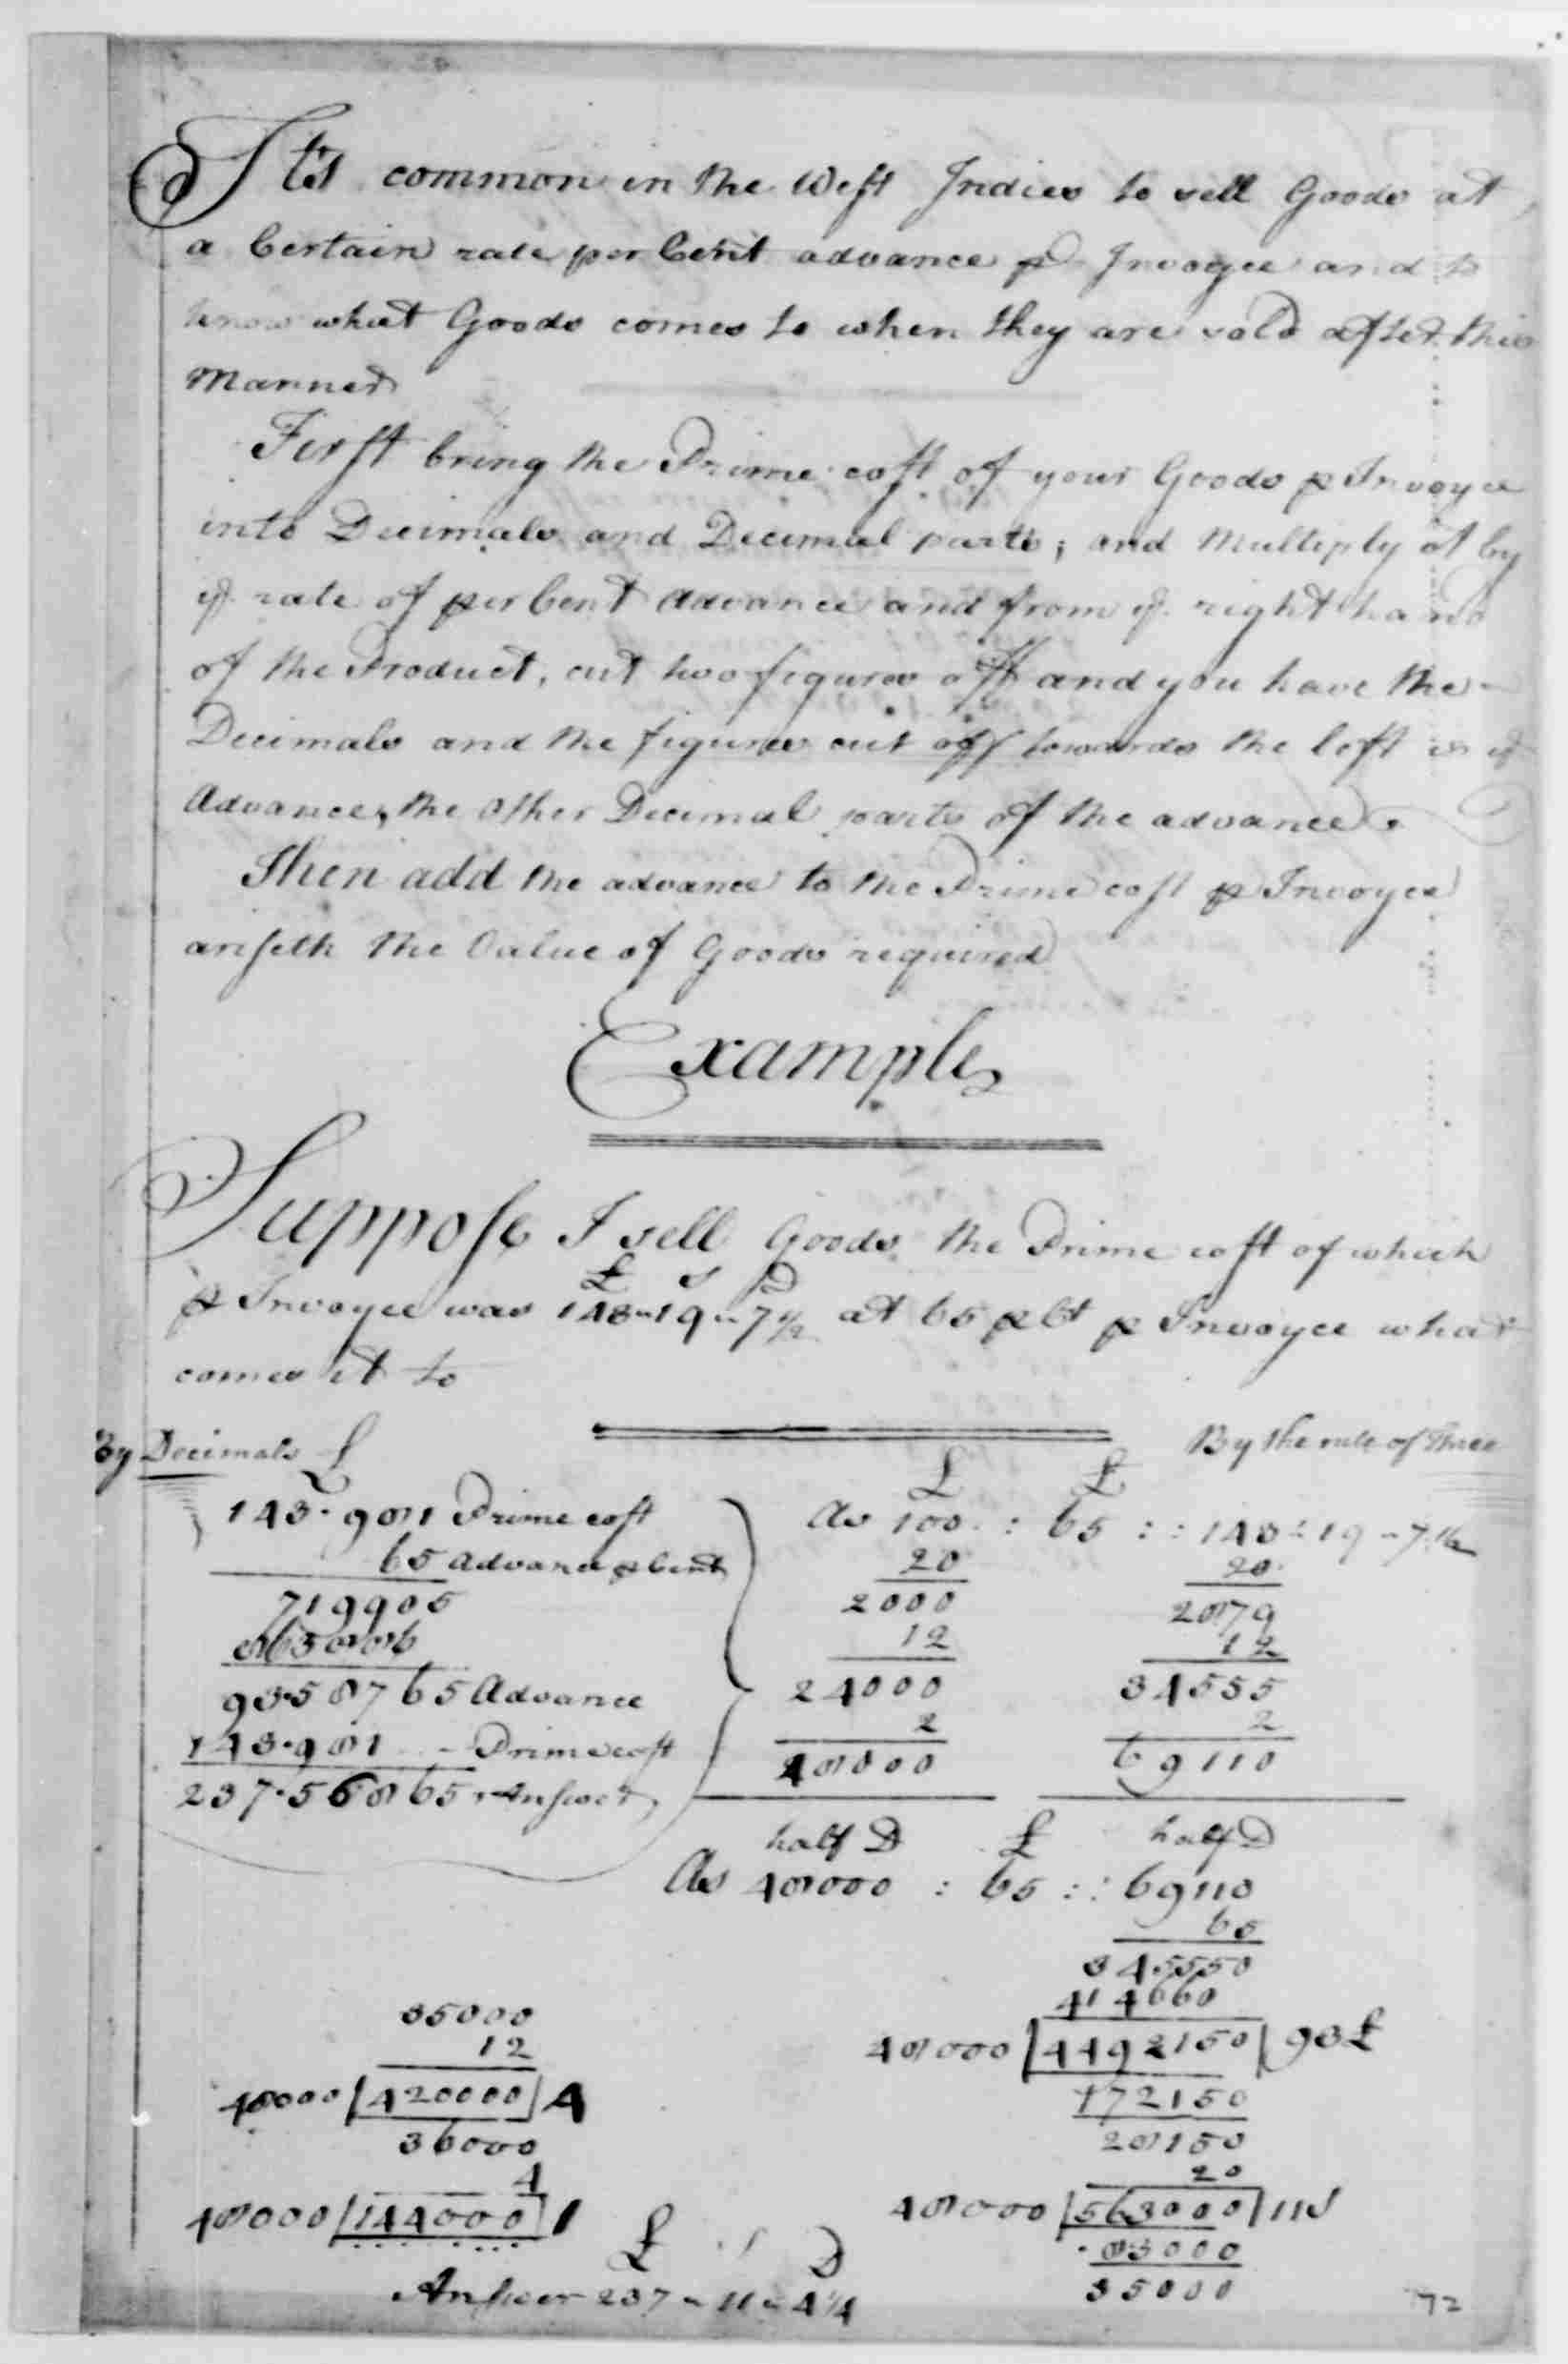 Its common in the West Indies to sell Goods at
a Certain rate per Cent advance p Invoyce and to
know what Goods comes to when they are sold after this
Manner
First bring the Prime cost of your Goods p Invoyce
into Decimals and Decimal parts; and Multiply it by
ye rate of per Cent Advance and from ye right hand
of the Product, cut two figures off and you have the
Decimals and the figures cut off towards the left is ye
Advance, the other Decimal parts of the advance.
Then add the advance to the Prime cost p Invoyce
ariseth the Value of Goods required
Example
Suppose I sell Goods the Prime cost of which
£ s D
p Invoyce was 143"19"7½ at 65 p Ct p Invoyce what
comes it to
By Decimals £ By the rule of Three
143.981 Prime cost
65 Advance p Cent
719905
863886
93.58765 Advance
143.981 - Prime cost
237.56865 Answer
£ £
As 100 : 65 :: 143"19"7½
20 20
2000 2879
12 12
24000 34555
2 2
48000 69110
half D £ half D
As 48000 : 65 :: 69110
65
345550
414660
48000 | 4492150 | 93£
172150
28150
20
48000 | 563000 | 11s
83000
35000
35000
12
48000 | 420000 | 4
36000
4
48000 | 144000 | 1
£ s D
Answer 237"11"4¼
72